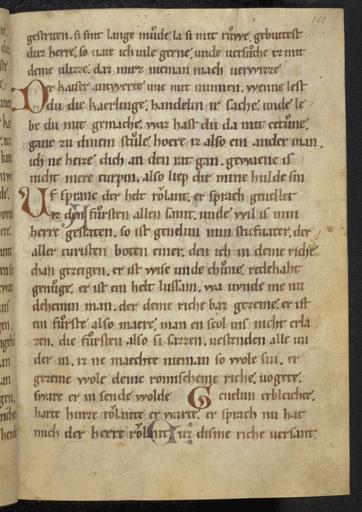 gestriten. si sint lange můde. la si mit růwe. gebutest
duz herre. so uare ich uile gerne. unde uersůche iz mit
deme ulizze. daz mirz nieman mach uerwizze.
Der kaiser antwerte ime mit minnen. wenne lest
du die kaerlinge. handelen ir sache. unde le
be du mit gemache. waz hast du da mit zetůne.
ganc zu dinem stůle. hoere iz also ein ander man.
ich ne heize dich an den rat gan. gewaene is
nicht mere turpin. also liep dir mine hulde sin
Uf spranc der helt rôlant. er sprach geuellet
iz den fůrsten allen samt. unde wil is min
herre gestaten. so ist genelun min stiefuater. der
aller turisten boten einer. den ich in deme riche
chan gezeigen. er ist wise unde chůne. redehaft
genůge. er ist ein helt lussam. wa uunde me nu
deheinin man. der deme riche baz gezeme. er ist
ein fůrste also maere. man en scol ins nicht erla
zen. die fůrsten also si sazzen. uestenden alle un
der in. iz ne maechte nieman so wole sin. er
gezeme wole deme romischeme riche. uogete.
swaz er in sende wolde Genelun erbleichte.
harte hinze rôlante er warte. er sprach nu hat
mich der herre rôlant. uz disme riche uersant.